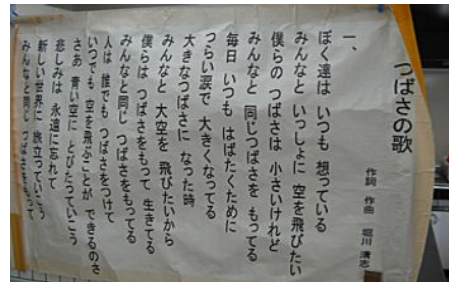 つばさの歌
作詞 作曲 堀川 清志
一、
ぼく達は いつも 想っている
みんなと いっしょに 空を飛びたい
僕らの つばさは 小さいけれど
みんなと 同じつばさを もってる
毎日 いつも はばたくために
つらい涙で 大きくなってる
大きなつばさに なった時
みんなと 大空を 飛びたいから
僕らは つばさをもって 生きてる
みんなと同じ つばさをもってる
人は 誰でも つばさをつけて
いつでも 空を飛ぶことが できるのさ
さあ 青い空に とびたっていこう
悲しみは 永遠に忘れて
新しい世界に 旅立っていこう
みんなと同じ つばさをもって